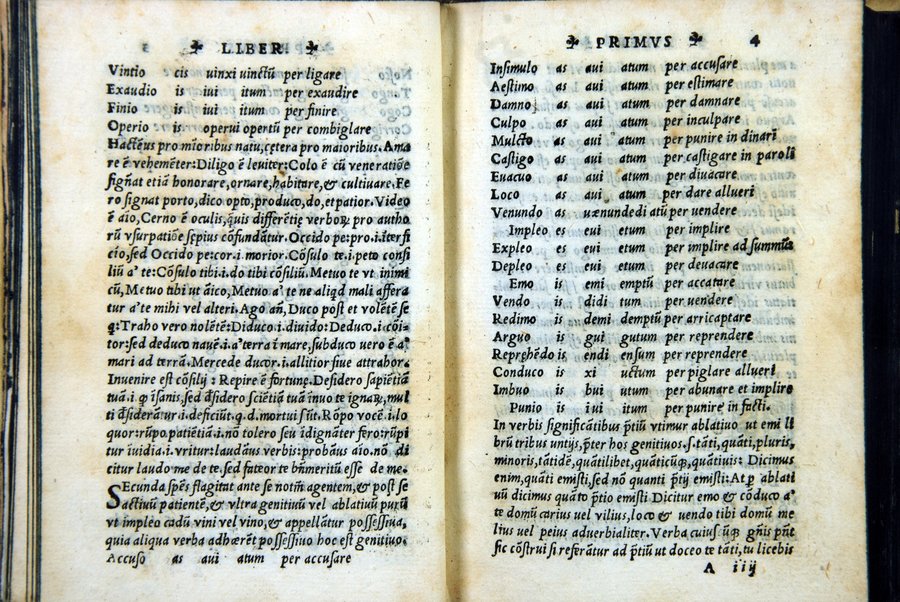 LIBER
Vintio cis uinxi uinctũ per ligare
Exaudio is iui itum per exaudire
Finio is iui itum per finire
Operio is operui opertũ per combiglare
Hactẽus pro mĩoribus natu, cętera pro maioribus. Ama
re ẽ vehemẽter: Diligo ẽ leuiter: Colo ẽ cũ veneratiõe
signat etiã honorare, ornare, habitare, & cultiuare. Fe
ro signat porto, dico opto, produco, do, et patior. Video
ẽ aio, Cerno ẽ oculis, quis differẽtię verborꝝ pro autho
rũ vsurpatiõe sępius cõfundãtur. Occido pe: pro .i. iterfi
cio, sed Occido pe: cor .i. morior. Cõsulo te .i. peto consi
liũ a' te: Cõsulo tibi .i. do tibi cõsiliũ. Metuo te vt inimi
cũ, Metuo tibi ut aĩco, Metuo a' te ne aliqd mali affera
tur a' te mihi vel alteri. Ago añ, Duco post et volẽtẽ se
q: Traho vero nolẽtẽ: Diduco .i. diuido: Deduco .i. cõi
tor: sed deduco nauẽ .i. a' terra ĩ mare, subduco vero ẽ a
mari ad terrã. Mercede ducor .i. allitior siue attrahor.
Inuenire est cõsilij: Repire ẽ fortunę. Desidero sapiẽtiã
tuã .i. q isanis, sed dsidero sciẽtiã tuã inuo te ignarꝝ, mul
ti dsiderãtur .i. deficiũt. q. d. mortui sũt. Rõpo vocẽ .i. lo
quor: rũpo patiẽtiã .i. nõ tolero seu ĩdignãter fero: rũpi
tur iuidia .i. vritur: laudãus verbis: probãus aĩo. nõ di
citur laudo me de te, sed fateor te bñmeritũ esse de me.
SEcunda spẽs flagitat ante se notm agentem, & post se
actiuũ patientẽ, & vltra genitiuũ vel ablatiuũ purũ
vt impleo cadũ vini vel vino, & appellãtur possessiua,
quia aliqua verba adhærẽt possessiuo hoc est genitiuo.
Accuso as aui atum per accusare
PRIMVS 4
Insimulo as aui atum per accusare
Aestimo as aui atum per estimare
Damno as aui atum per damnare
Culpo as aui atum per inculpare
Mulcto as aui atum per punire in dinari
Castigo as aui atum per castigare in paroli
Euacuo as aui atum per diuacare
Loco as aui atum per dare allueri
Venundo as uænundedi atũ per uendere
Impleo es eui etum per implire
Expleo es eui etum per implire ad summũ
Depleo es eui etum per deuacare
Emo is emi emptũ per accatare
Vendo is didi tum per uendere
Redimo is demi demptũ per arricaptare
Arguo is gui gutum per reprendere
Reprehẽdo is endi ensum per reprendere
Conduco is xi uctum per piglare allueri
Imbuo is bui utum per abunare et implire
Punio is iui itum per punire in facti.
In verbis significãtibus p̃tiũ vtimur ablatiuo ut emi li
brũ tribus untijs, p̃ter hos genitiuos .s. tãti, quãti, pluris,
minoris, tãtidẽ, quãtilibet, quãticũꝗ, quãtiuis: Dicimus
enim, quãti emisti, sed nõ quanti p̃tij emisti: At ꝑ ablati
uũ dicimus quãto p̃tio emisti Dicitur emo & cõduco a'
te domũ carius vel vilius, loco & uendo tibi domũ me
lius vel peius adverbialiter. Verba cuiuscũꝗ gñis pñt
sic cõstrui si referãtur ad p̃tiũ ut doceo te tãti, tu licebis
A iiij